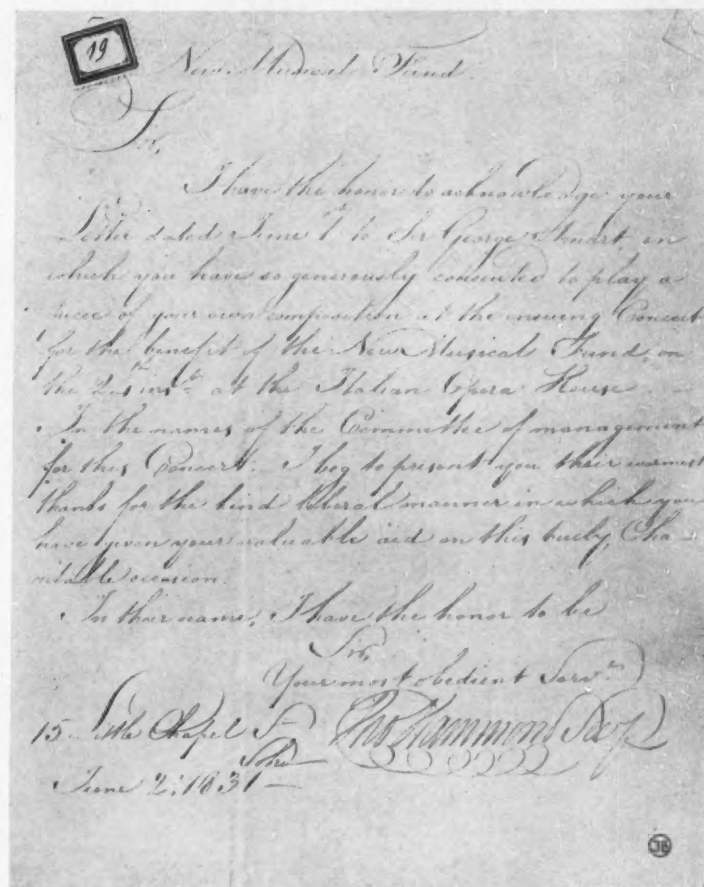 19
New Musical Fund.
Sir,
I have the honor to acknowledge your
Letter dated June 1st to Sir George Smart, in
which you have so generously consented to play a
piece of your own composition at the ensuing Concert
for the benefit of the New Musical Fund, on
the inst. at the Italian Opera House
In the names of the Committee of management
for this Concert. I beg to present you their warmest
thanks for the kind liberal manner in which you
have given your valuable aid on this truly Cha-
ritable occasion.
In their name, I have the honor to be
Sir,
Your most obedient Servt.
15 Little Chapel St Thos Hammond Secy
Soho
June 2: 1831
JB